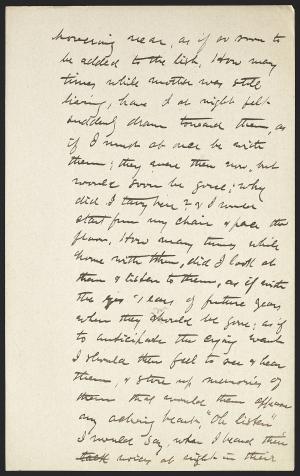 hovering near, as if so soon to
be added to the list. How many
times while mother was still
living, have I at night felt
suddenly drawn toward them, as
if I must at once be with
them; they were there now, but
would soon be gone; why
did I tarry here? & I would
start from my chair & pace the
floor. How many times, while
home with them, did I look at
them & listen to them, as if with
the eyes & ears of future years
when they should be gone; as if
to anticipate the crying want
I should then feel to see & hear
them, & store up memories of
them that would then appease
my aching heart. "Oh listen"
I would say, when I heard their
voices at night in their